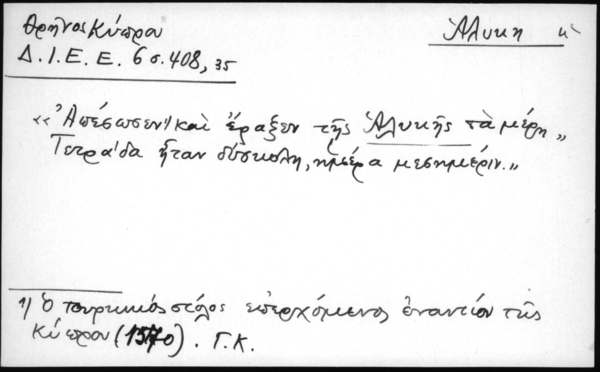 Θρῆνος Κύπρου
Ἁλυκη κ'
Δ.Ι.Ε.Ε. 6 σ. 408, 35
«Ἀπέσωσεν¹⁾ καὶ ἔραξεν τῆς Ἁλυκῆς τὰ μέρη,,
Τετράδα ἦταν δύσκολη, ἡμέρα μεσημέριν.»
1) Ὁ τουρκικός στόλος ἐπερχόμενος ἐναντίον τῆς
Κύπρου (1570). Γ.Κ.